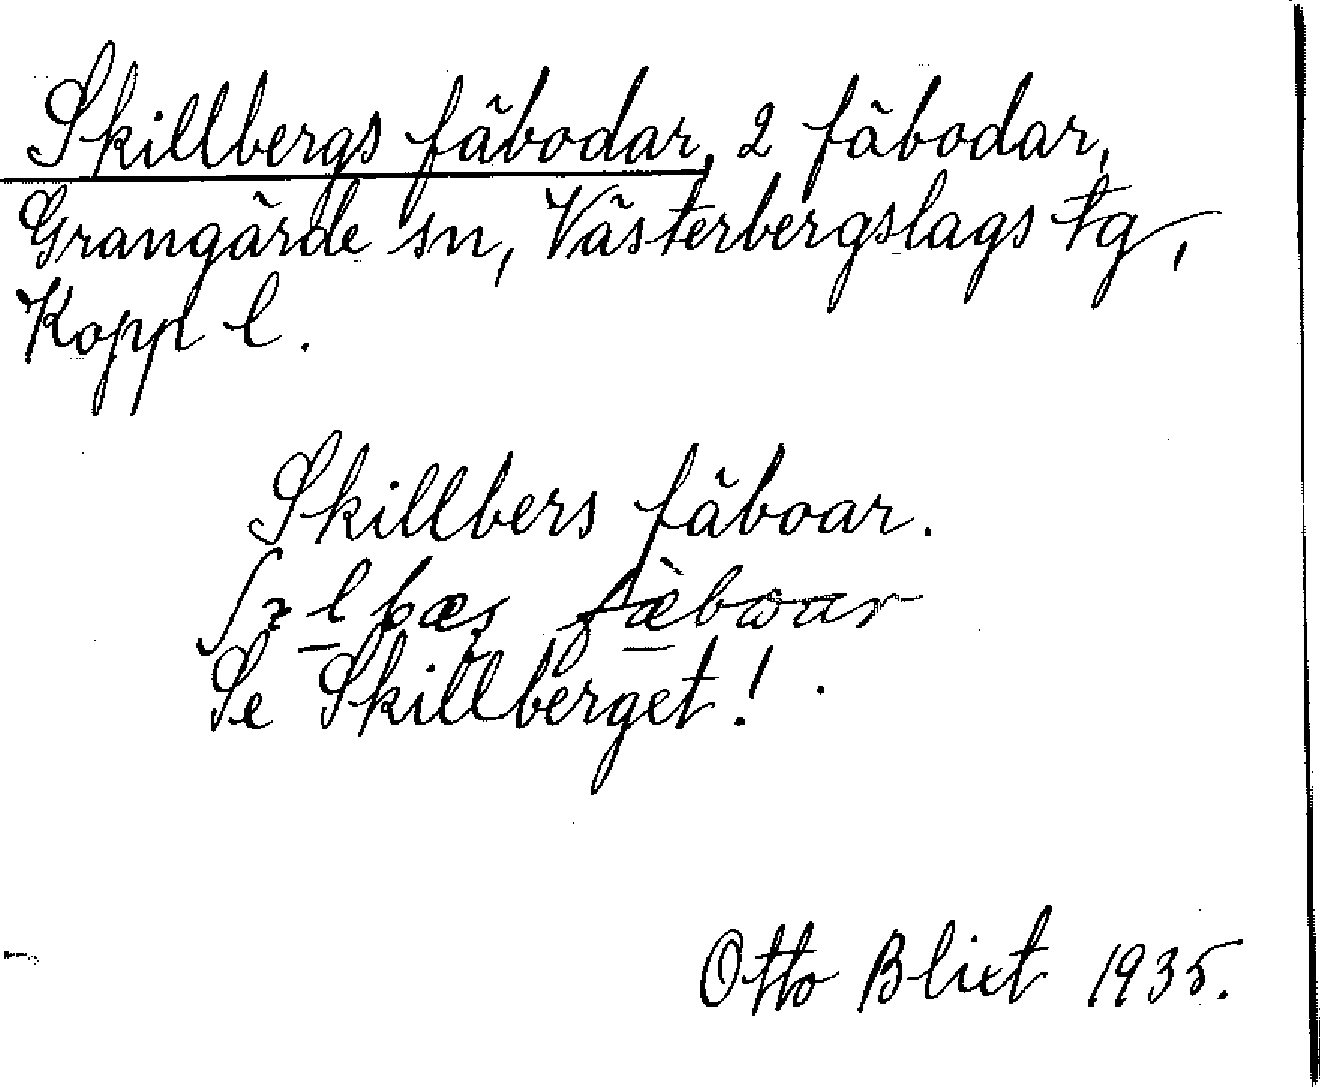 Skillbergs fäbodar, 2 fäbodar,
Grangärde sn, Västerbergslags tg,
Kopp l.
Skillbers fäboar.
Se Skillberget!
Otto Blixt 1935.